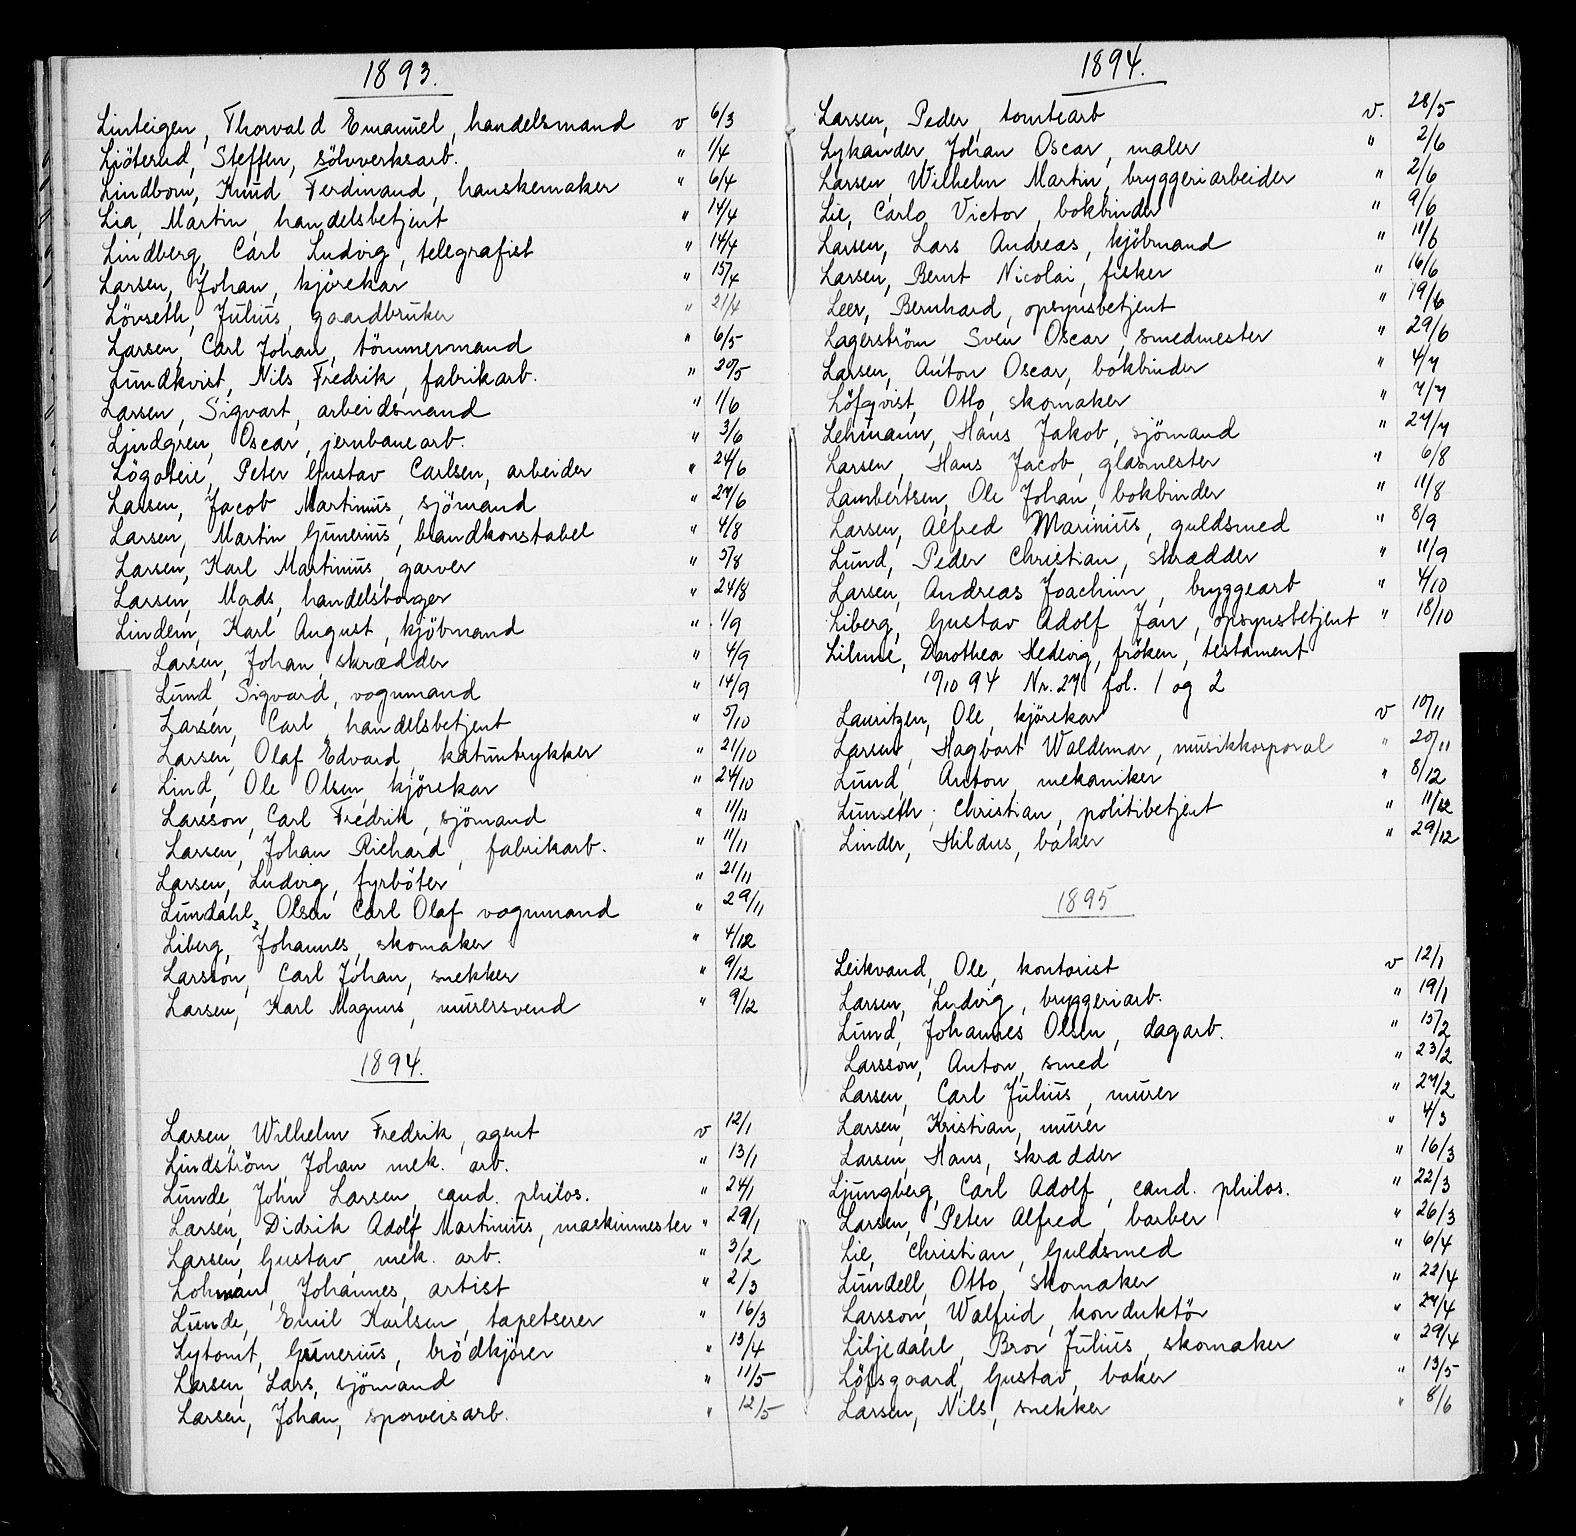 1893.
Linteigen, Thorvald Emanuel, handelsmand v 6/3
Ljöterud, Steffen, sölvverksarb. " 1/4
Lindbom, Knud Ferdinand, hanskemaker " 6/4
Lia, Martin, handelsbetjent " 14/4
Lindberg, Carl Ludvig, telegrafist " 14/4
Larsen, Johan, kjörekar " 15/4
Lövseth, Julius, gaardbruker " 21/4
Larsen, Carl Johan, tömmermand " 6/5
Lundkvist, Nils Fredrik, fabrikarb. " 20/5
Larsen, Sigvart, arbeidsmand " 1/6
Lindgren, Oscar, jernbanearb. " 3/6
Peter Gustav Carlsen, arbeider " 24/6
Larsen, Jacob Martinius, sjömand " 27/6
Larsen, Martin Gunerius, brandkonstabel " 4/8
Larsen, Karl Martinius, garver " 5/8
Larsen, Mads, handelsborger " 24/8
Lindem, Karl August, kjöbmand " 1/9
Larsen, Johan, skrædder " 4/9
Lund, Sigvard, vognmand " 14/9
Larsen, Carl, handelsbetjent " 5/10
Larsen, Olaf Edvard, katuntrykker " 21/10
Lind, Ole Olsen, kjörekar " 24/10
Larsson, Carl Fredrik, sjömand " 11/11
Larsen, Johan Richard, fabrikarb. " 11/11
Larsen, Ludvig, fyrböter " 21/11
Lundahl, Olsen Carl Olaf vognmand " 29/11
Liberg, Johannes, skomaker " 4/12
Larsson, Carl Johan, snekker " 9/12
Larsen, Karl Magnus, murersvend " 9/12
1894.
Larsen, Wilhelm Fredrik, agent v 12/1
Lindström, Johan mek. arb. " 13/1
Lunde, John Larsen, cand. philos. " 24/1
Larsen, Didrik Adolf Martinius, maskinmester " 29/1
Larsen, Gustav, mek. arb. " 3/2
Lohman, Johannes, artist " 2/3
Lunde, Emil Karlsen, tapetserer " 16/3
Lytomt, Gunerius, brödkjörer " 13/4
Larsen, Lars, sjömand " 11/5
Larsen, Johan, sporveisarb. " 12/5
1894.
Larsen, Peder, tomtearb v. 28/5
Lykander, Johan Oscar, maler " 2/6
Larsen, Wilhelm Martin, bryggeriarbeider " 2/6
Lie, Carlo Victor, bokbinder " 9/6
Larsen, Lars Andreas, kjöbmand " 11/6
Larsen, Bernt Nicolai, fisker " 16/6
Leer, Bernhard, opsynsbetjent " 19/6
Lagerström Sven Oscar, smedmester " 29/6
Larsen, Anton Oscar, bokbinder " 4/7
Löfqvist, Otto, skomaker " 7/7
Lehmann, Hans Jakob, sjömand " 27/7
Larsen, Hans Jacob, glasmester " 6/8
Lambertsen, Ole Johan, bokbinder " 11/8
Larsen, Alfred Marinius, guldsmed " 8/9
Lund, Peder Christian, skrædder " 11/9
Larsen, Andreas Joachim, bryggearb " 4/10
Liberg, Gustav Adolf Jan, opsynsbetjent " 18/10
Dorothea Hedevig, fröken, testament
19/10 94 Nr. 27 fol. 1 og 2
Lauritzen, Ole, kjörekar v 10/11
Larsen, Hagbart Waldemar, musikkorporal " 20/11
Lund, Anton mekaniker " 8/12
Lunseth, Christian, politibetjent " 11/12
Linder, Hildus, baker " 29/12
1895
Leikvand, Ole, kontorist v 12/1
Larsen, Ludvig, bryggeriarb. " 19/1
Lund, Johannes Olsen, dagarb. " 15/2
Larsson, Anton, smed " 23/2
Larsen, Carl Julius, murer " 27/2
Larsen, Kristian, murer " 4/3
Larsen, Hans, skrædder " 16/3
Ljungberg, Carl Adolf, cand. philos. " 22/3
Larsen, Peter Alfred, barber " 26/3
Lie, Christian, Guldsmed " 6/4
Lundell, Otto, skomaker " 22/4
Larsson, Walfrid, konduktör " 27/4
Liljedahl, Bror Julius, skomaker " 29/4
Löfsgaard, Gustav, baker " 13/5
Larsen, Nils, snekker " 8/6